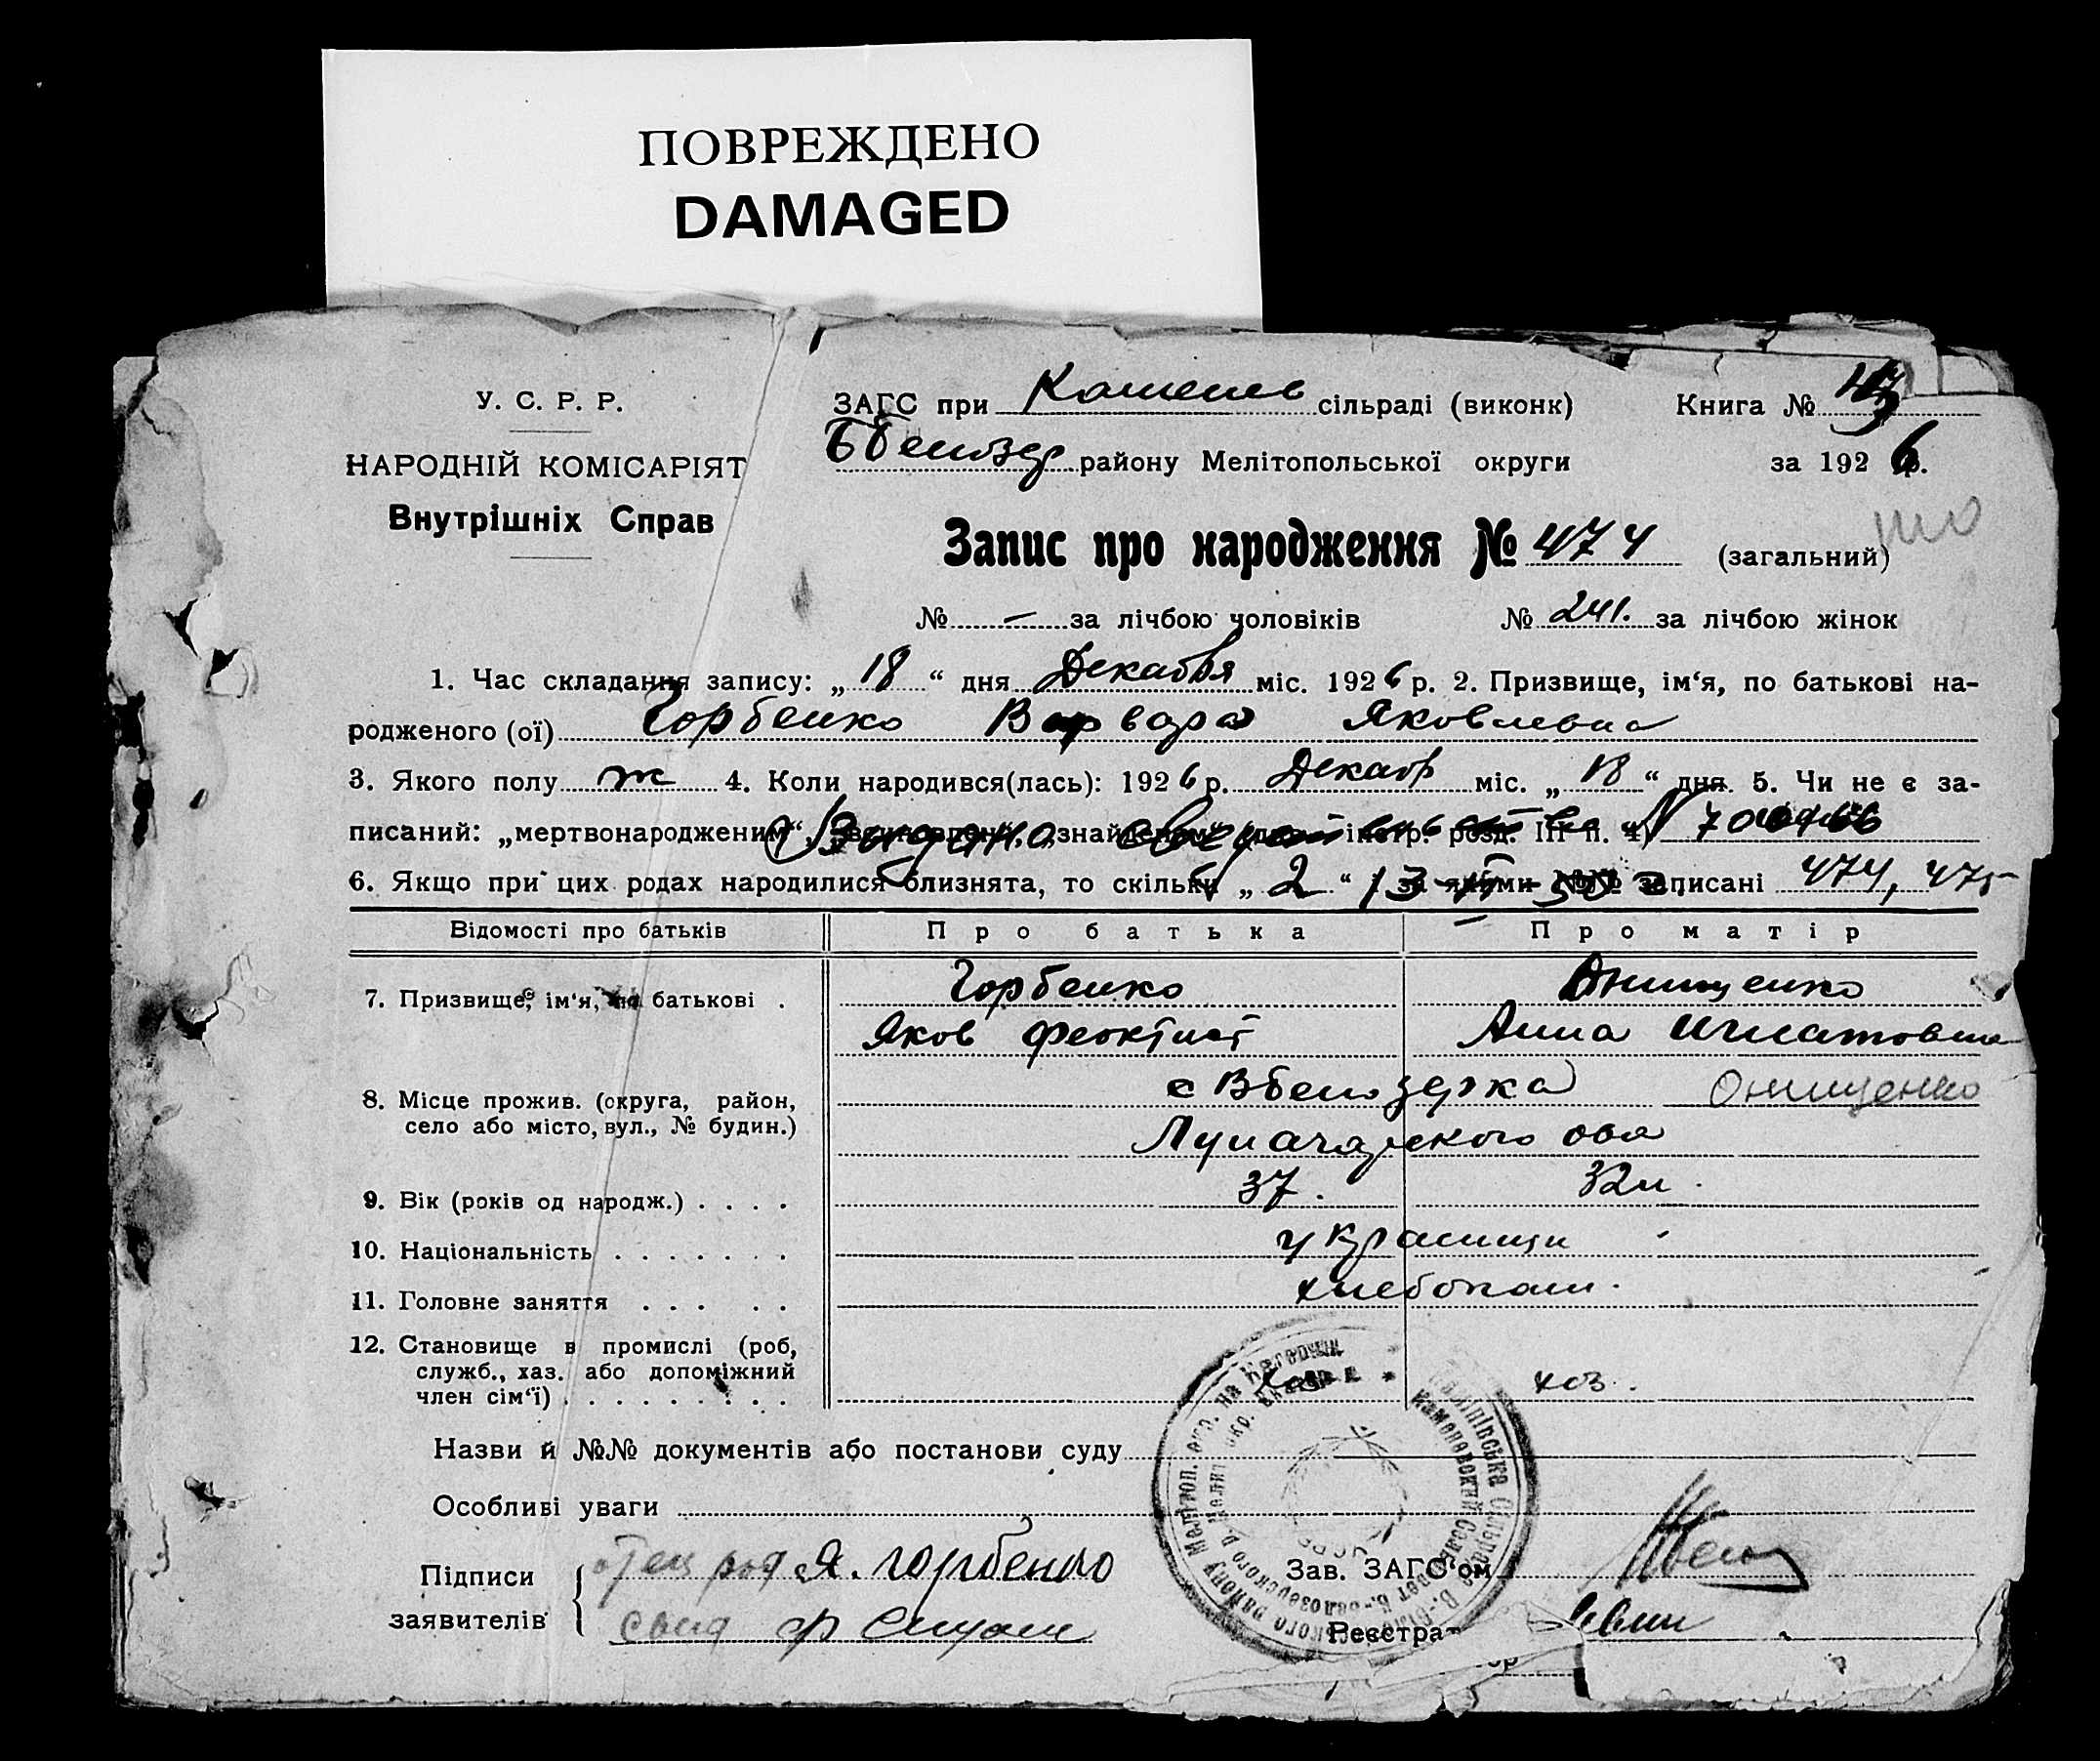 ПОВРЕЖДЕНО
DAMAGED
У. С. Р. Р.
НАРОДНІЙ КОМІСАРІЯТ
Внутрішніх Справ
ЗАГС при Каменев сільраді (виконк) Книга №
ББелозер району Мелітопольської округи за 1926 р.
Запис про народження № 474 (загальний)
№ — за лічбою чоловіків № 241. за лічбою жінок
1. Час складання запису: „18“ дня Декабря міс. 1926 р. 2. Призвище, ім‘я, по батькові на-
родженого (ої) Горбенко Варвара Яковлевна
3. Якого полу ж 4. Коли народився(лась): 1926 р. Декабр міс. „18“ дня 5. Чи не є за-
писаний: „мертвонародженим“, інстр. розд. III п. 4)
Выдано
6. Якщо при цих родах народилися близнята, то скільки „2“ і за якими №№ записані 474, 475
Відомості про батьків Про батька Про матір
7. Призвище, ім‘я, по батькові . Горбенко Онищенко
Яков Феоктист Анна Игнатовна
8. Місце прожив. (округа, район, с Вбелозерка Онищенко
село або місто, вул., № будин.) Луначарского
9. Вік (років од народж.) . . . . 37. 32
10. Національність . . . . . . . украинцы
11. Головне заняття . . . . . хлебопаш.
12. Становище в промислі (роб,
служб., хаз. або допоміжний
член сім‘ї) . . . . . . . . . Хоз хоз.
Назви й №№ документів або постанови суду
Особливі уваги
Підписи отец Я. Горбенко Зав. ЗАГС‘ом
заявителів свид Реєстра